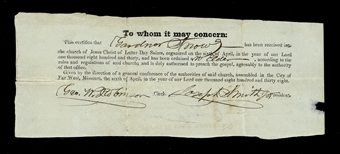 To whom it may concern:
This certifies that Gardner Snow has been received into
the church of Jesus Christ of Latter Day Saints, organized on the sixth of April, in the year of our Lord
one thousand eight hundred and thirty, and has been ordained an Elder according to the
rules and regulations of said church, and is duly authorized to preach the gospel, agreeably to the authority
of that office.
Given by the direction of a general conference of the authorities of said church, assembled in the City of
Far West, Missouri, the sixth of April, in the year of our Lord one thousand eight hundred and thirty eight.
Geo. W. Robinson Clerk. Joseph Smith Jr